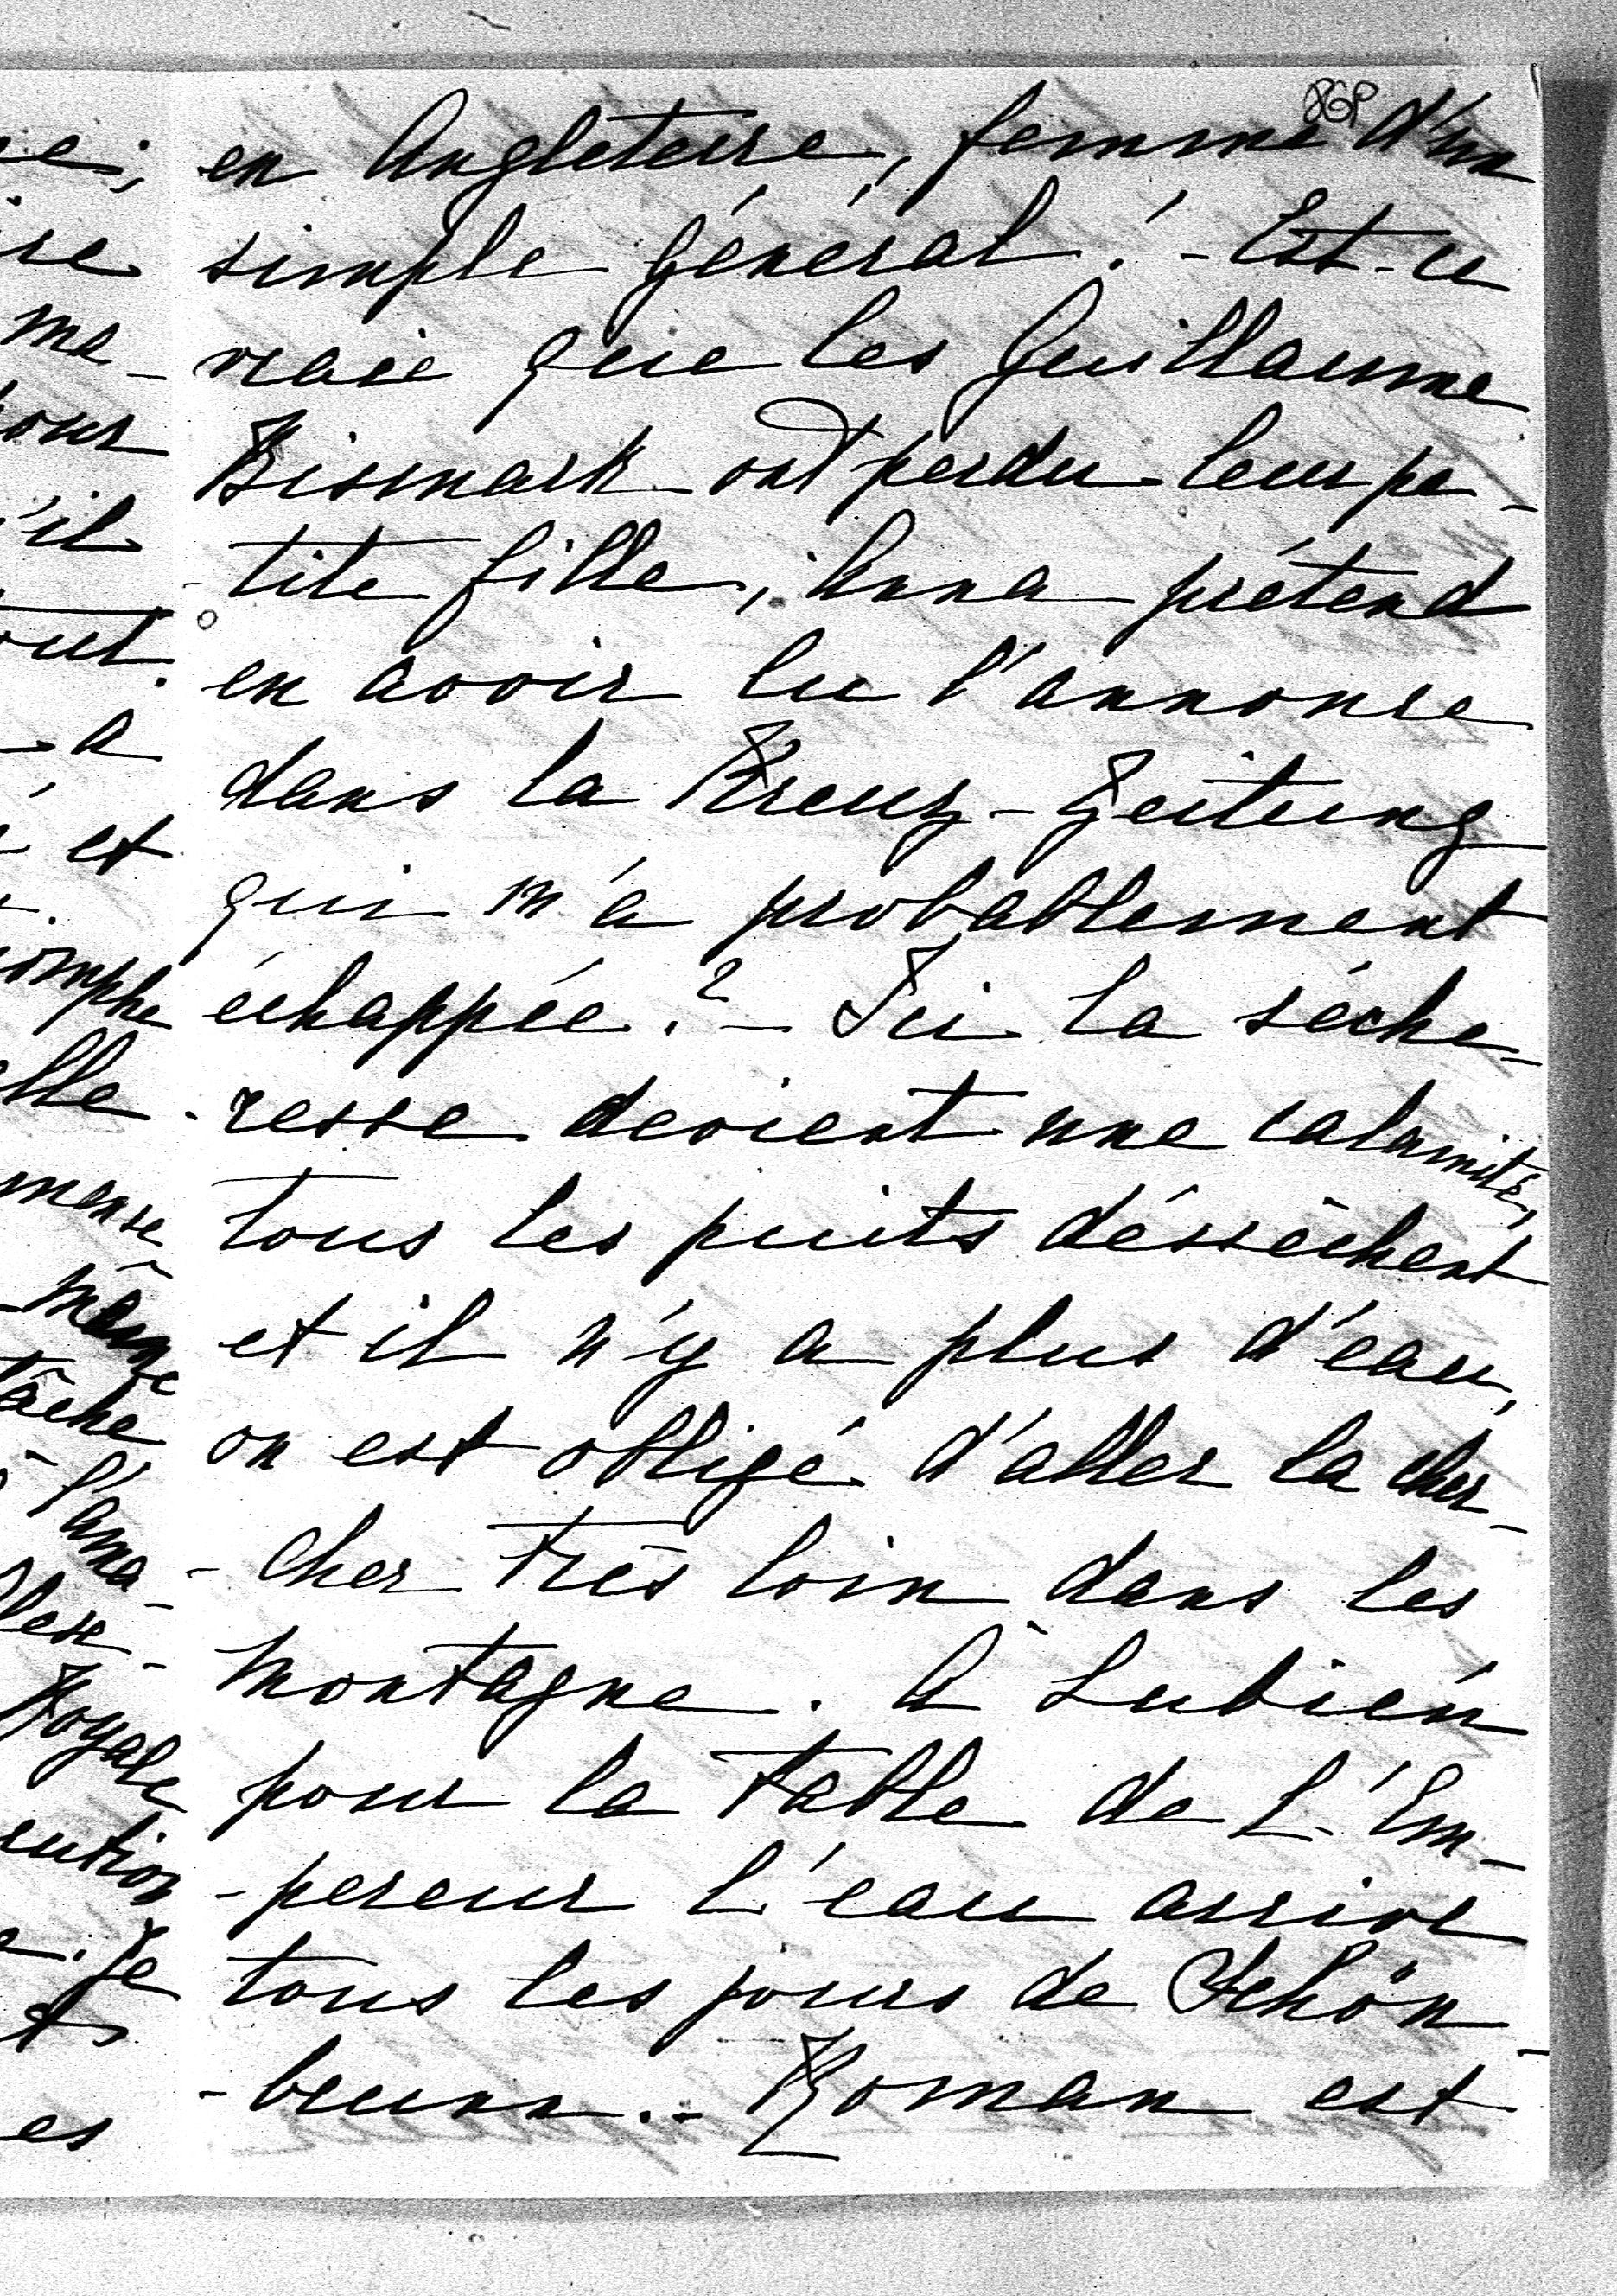 en Angleterre, femme d'un
simple Général! - Est-ce
vraie que les Guillaume
Bismark ont perdu leur pe-
-tite fille, Anna prétend
en avoir lu l'annonce
dans la Kreuz-Zeitung
qui m'a probablement
échappée? - Ici la séche-
-resse devient une calamité,
tous les puits déssèchent
et il n'y a plus d'eau,
on est obligé d'aller la cher-
-cher très loin dans les
montagne. A Lubień
pour la table de L'Em-
-pereur L'eau arrive
tous les jours de Schön-
-brunn. - Roman est